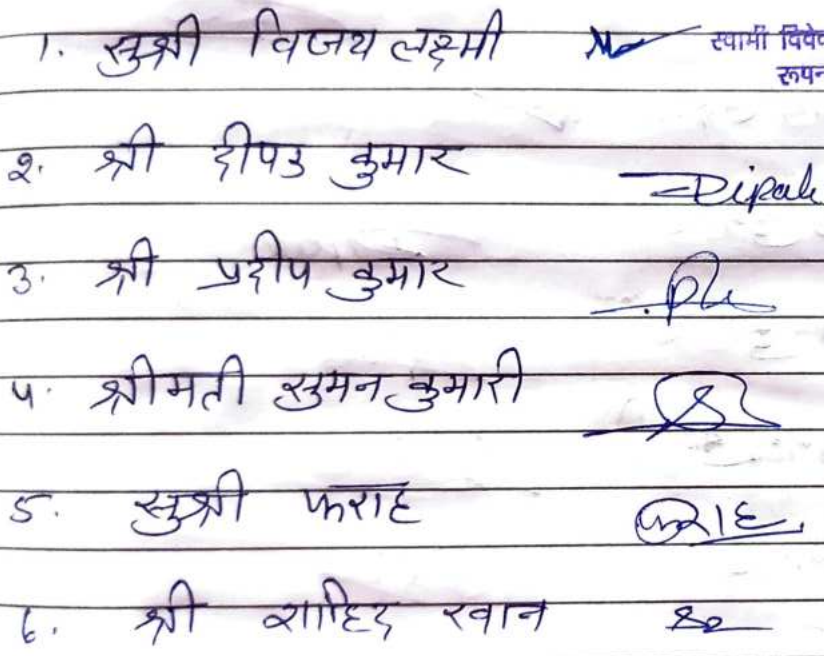 १. सुश्री विजय लक्ष्मी स्वामी
रूपन
२. श्री दीपक कुमार Dipak
३. श्री प्रदीप कुमार
४. श्रीमती सुमन कुमारी
५. सुश्री फराह फराह
६. श्री शाहिद खान